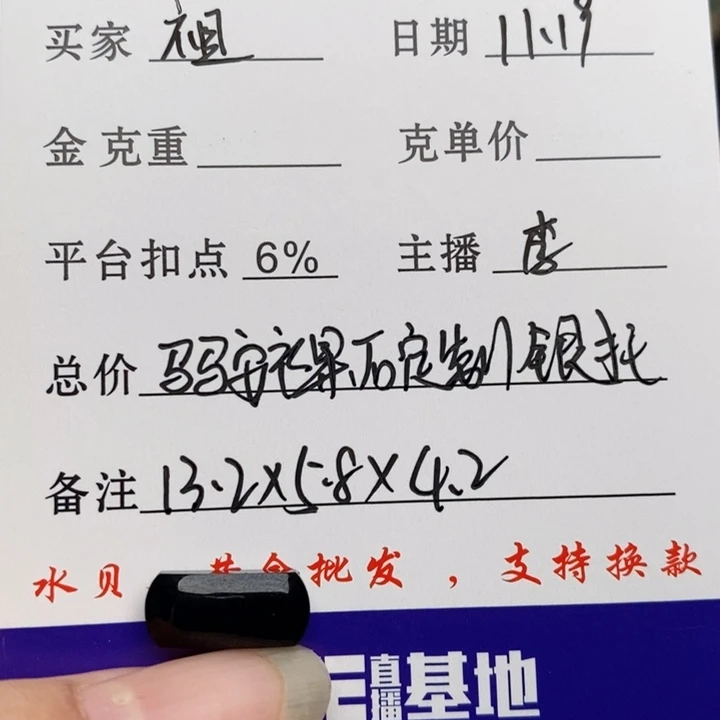 买家 祖 日期 11.19
金克重 克单价
平台扣点 6% 主播 李
总价 马马安衣果石定制银托
备注 13.2×5.8×4.2
水贝 黄金批发，支持换款
直播基地